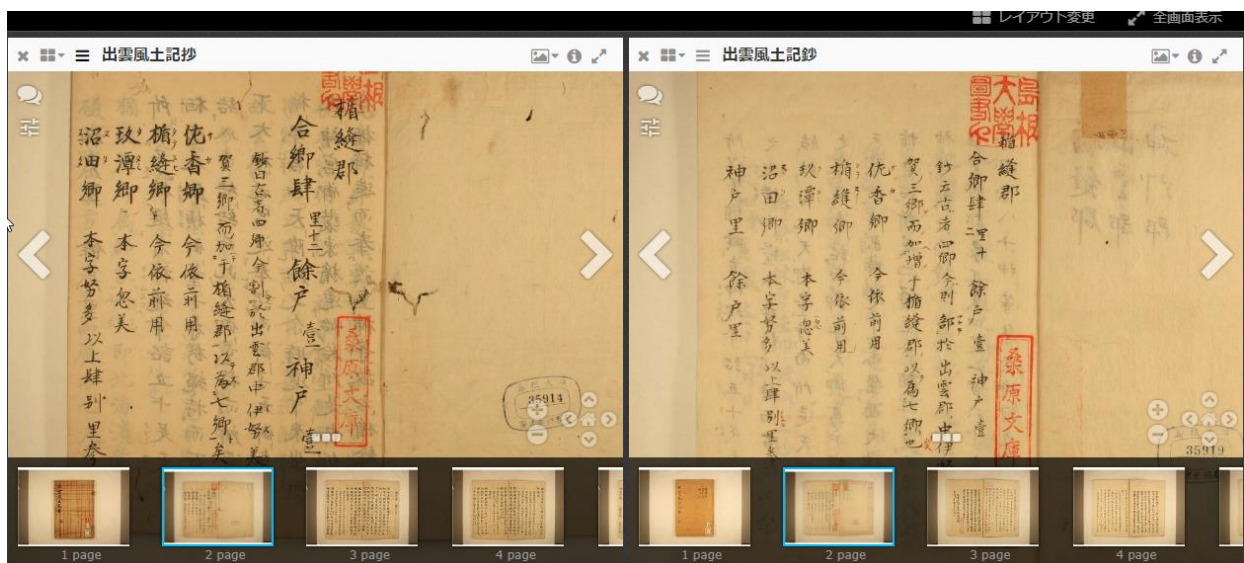 レイアウト変更 全画面表示
出雲風土記抄
島根
大學
圖書
楯縫郡
合郷肆 里十二 餘戸 壹 神戸 壹
鈔曰古者四郷今割於出雲郡中伊努美
賀三郷而加于楯縫郡以為七郷矣
佐香郷 今依前用
楯縫郷 今依前用
玖潭郷 本字忽美
沼田郷 本字努多 以上肆別里参
桑原文庫
35914
1 page
2 page
3 page
4 page
出雲風土記鈔
島根
大學
圖書
楯縫郡
合郷肆 里十二 餘戸 壹 神戸 壹
鈔云古者四郷今則部於出雲郡中伊
賀三郷而加増于楯縫郡以為七郷也
佐香郷 今依前用
楯縫郷 今依前用
玖潭郷 本字忽美
沼田郷 本字努多 以上肆別里
神戸里 餘戸里
桑原文庫
35919
1 page
2 page
3 page
4 page